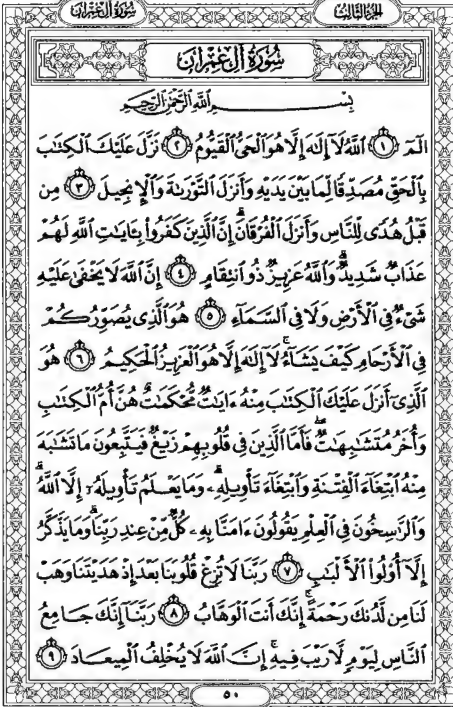 سُورَةُ آلِ عِمْرَانَ
الجُزْءُ الثَّالِثُ
سُورَةُ آلِ عِمْرَانَ
بِسْمِ اللَّهِ الرَّحْمَٰنِ الرَّحِيمِ
الٓمٓ ١ ٱللَّهُ لَآ إِلَٰهَ إِلَّا هُوَ ٱلْحَىُّ ٱلْقَيُّومُ ٢ نَزَّلَ عَلَيْكَ ٱلْكِتَٰبَ
بِٱلْحَقِّ مُصَدِّقًا لِّمَا بَيْنَ يَدَيْهِ وَأَنزَلَ ٱلتَّوْرَىٰةَ وَٱلْإِنجِيلَ ٣ مِن
قَبْلُ هُدًى لِّلنَّاسِ وَأَنزَلَ ٱلْفُرْقَانَ ۗ إِنَّ ٱلَّذِينَ كَفَرُوا۟ بِـَٔايَٰتِ ٱللَّهِ لَهُمْ
عَذَابٌ شَدِيدٌ ۗ وَٱللَّهُ عَزِيزٌ ذُو ٱنتِقَامٍ ٤ إِنَّ ٱللَّهَ لَا يَخْفَىٰ عَلَيْهِ
شَىْءٌ فِى ٱلْأَرْضِ وَلَا فِى ٱلسَّمَآءِ ٥ هُوَ ٱلَّذِى يُصَوِّرُكُمْ
فِى ٱلْأَرْحَامِ كَيْفَ يَشَآءُ ۚ لَآ إِلَٰهَ إِلَّا هُوَ ٱلْعَزِيزُ ٱلْحَكِيمُ ٦ هُوَ
ٱلَّذِىٓ أَنزَلَ عَلَيْكَ ٱلْكِتَٰبَ مِنْهُ ءَايَٰتٌ مُّحْكَمَٰتٌ هُنَّ أُمُّ ٱلْكِتَٰبِ
وَأُخَرُ مُتَشَٰبِهَٰتٌ ۖ فَأَمَّا ٱلَّذِينَ فِى قُلُوبِهِمْ زَيْغٌ فَيَتَّبِعُونَ مَا تَشَٰبَهَ
مِنْهُ ٱبْتِغَآءَ ٱلْفِتْنَةِ وَٱبْتِغَآءَ تَأْوِيلِهِۦ ۗ وَمَا يَعْلَمُ تَأْوِيلَهُۥٓ إِلَّا ٱللَّهُ ۗ
وَٱلرَّٰسِخُونَ فِى ٱلْعِلْمِ يَقُولُونَ ءَامَنَّا بِهِۦ كُلٌّ مِّنْ عِندِ رَبِّنَا ۗ وَمَا يَذَّكَّرُ
إِلَّآ أُو۟لُوا۟ ٱلْأَلْبَٰبِ ٧ رَبَّنَا لَا تُزِغْ قُلُوبَنَا بَعْدَ إِذْ هَدَيْتَنَا وَهَبْ
لَنَا مِن لَّدُنكَ رَحْمَةً ۚ إِنَّكَ أَنتَ ٱلْوَهَّابُ ٨ رَبَّنَآ إِنَّكَ جَامِعُ
ٱلنَّاسِ لِيَوْمٍ لَّا رَيْبَ فِيهِ ۚ إِنَّ ٱللَّهَ لَا يُخْلِفُ ٱلْمِيعَادَ ٩
٥٠